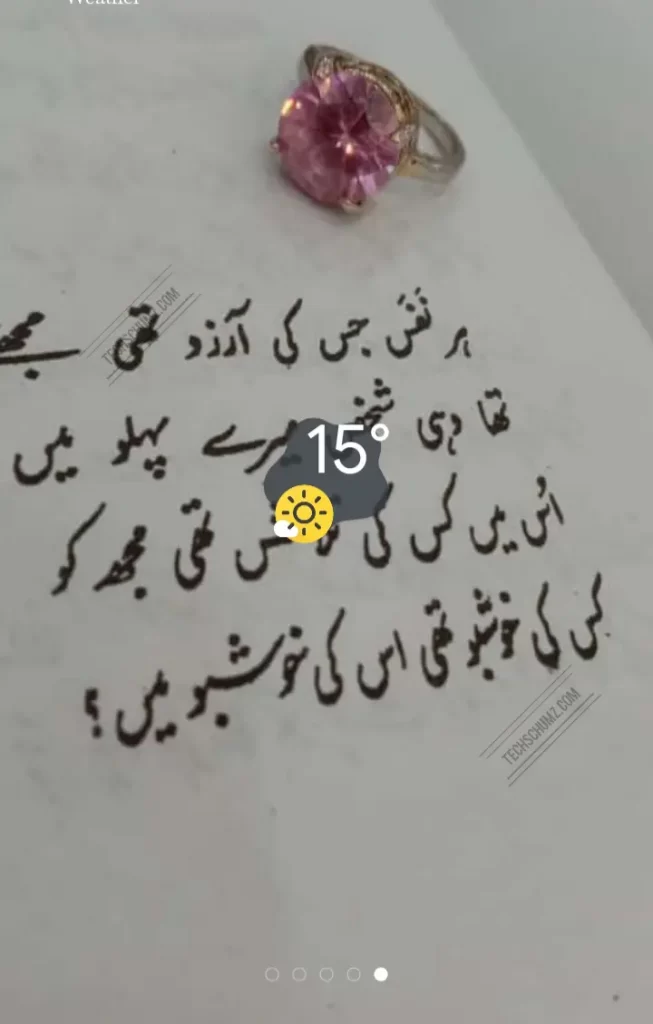 Weather
ہر نَفَس جس کی آرزو تھی مجھے
TECHSCHUMZ.COM
تھا وہی شخص میرے پہلو میں
15°
اُس میں کس کی تھی مجھ کو
کس کی خوشبو تھی اس کی خوشبو میں ؟
TECHSCHUMZ.COM